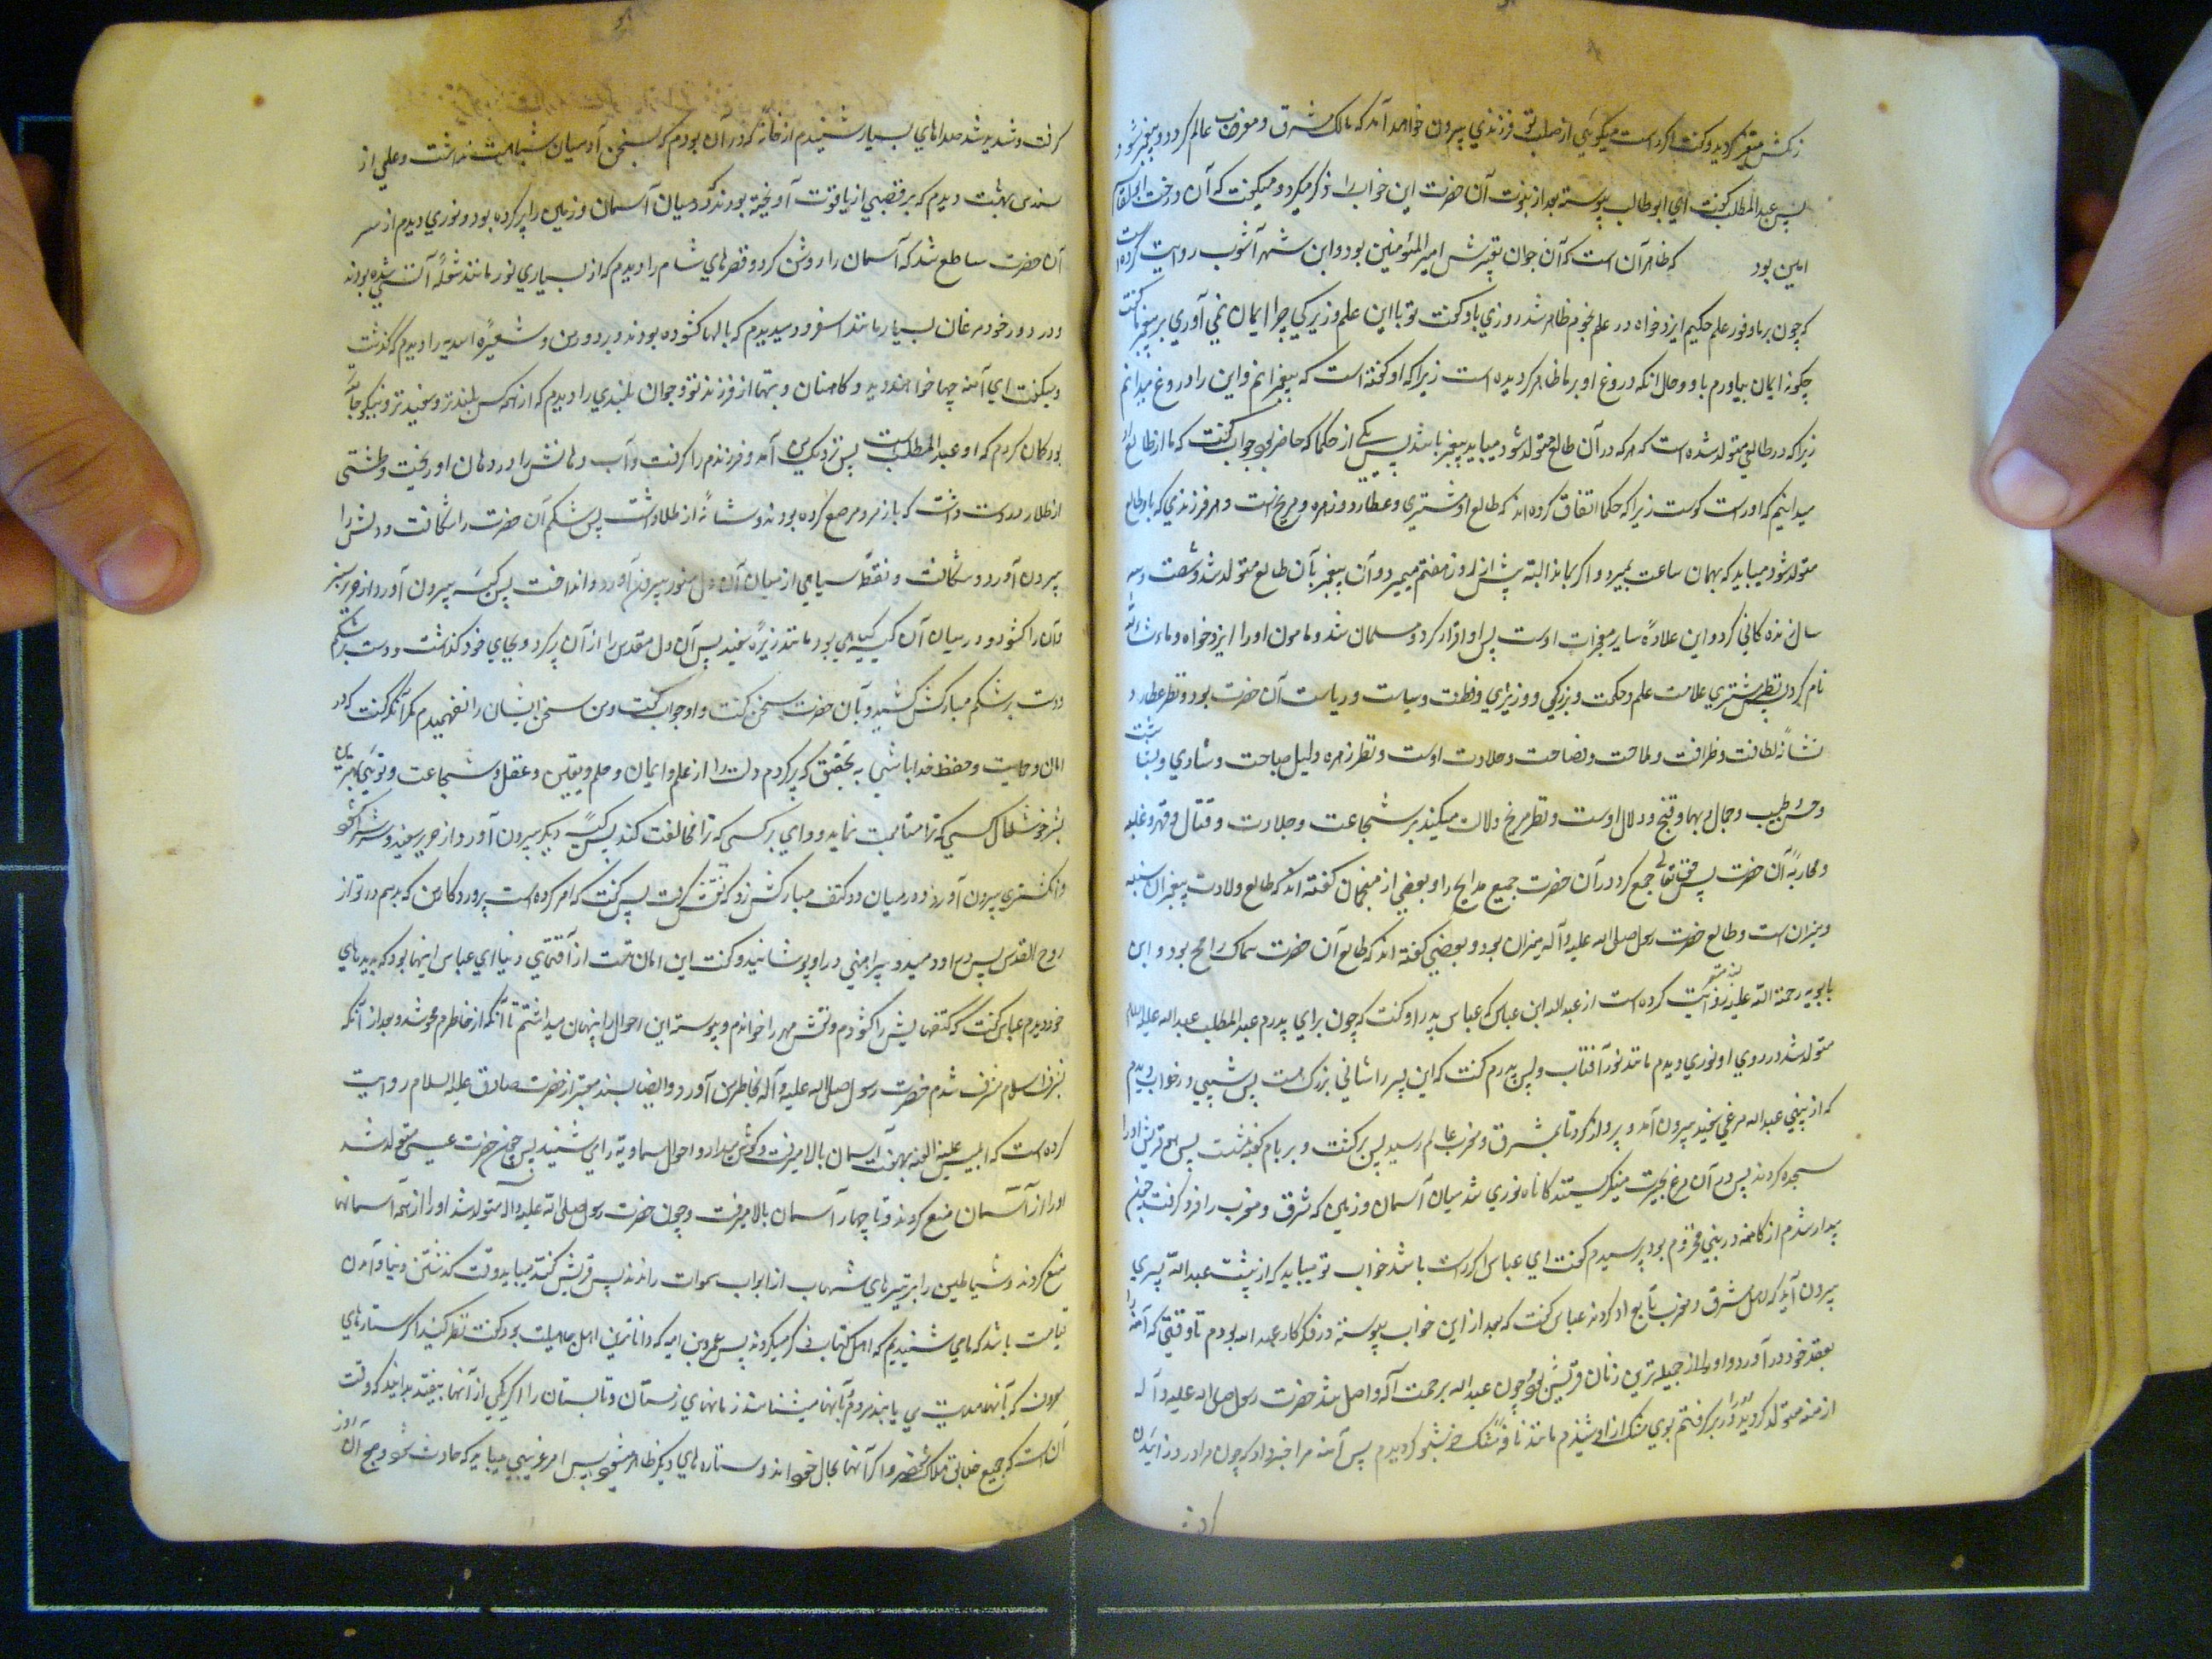 رنکش متغیر کردید و کفت اگر راست میکوئی از صلب تو فرزندی بیرون خواهد آمد که مالک مشرق و مغرب عالم کردد و پیغمبر شود
پس عبدالمطلب کفت ای ابوطالب پیوسته بعد از بنوت آن حضرت این خواب را ذکر میکرد و میکفت که آن درخت ابوالقاسم
امین بود که ظاهر آن است که آن جوان تعبیرش امیرالمؤمنین بود و ابن شهر آشوب روایت کرده است
که چون بر ما وفور علم حکیم ایزدخواه در علم نجوم ظاهر شد روزی باو کفت تو با این علم و زیرکی چرا ایمان نمی آوری بر پیغمبر ما کفت
چکونه ایمان بیاورم باو و حال انکه دروغ او بر ما ظاهر کردیده است زیرا که او کفته است که پیغمبرانم و این را دروغ میدانم
زیرا که در طالعی متولد شده است که هر که در آن طالع متولد شود میباید پیغمبر باشد پس یکی از حکما که حاضر بود جواب کفت که ما از طالع او
میدانیم که او راست کوست زیرا که حکما اتفاق کرده اند که طالع او مشتری و عطارد و زهره و مریخ است و هر فرزندی که باو طالع
متولد شود میباید که بهمان ساعت بمیرد و اکر بماند البته پیش از روز هفتم میمیرد و آن پیغمبر بآن طالع متولد شد و شصت و سه
سال زنده کانی کرد و این علاوهٔ سایر معجزات اوست پس او اقرار کرد و مسلمان شد و مامون او را ایزدخواه و ماشاءالله
نام کرد پس نظر مشتری علامت علم و حکمت و بزرکی و وزیرای و فطنت و سیاست و ریاست آن حضرت بود و نظر عطارد
نشانهٔ لطافت و ظرافت و ملاحت و فصاحت و حلاوت اوست و نظر زهره دلیل صباحت و شادی و بشاشت
و حسن و طیب و جمال و بهاء و غنج و دلال اوست و نظر مریخ دلالت میکند بر شجاعت و جلادت و قتال و قهر و غلبه
و محاربهٔ آن حضرت پس حق تعالی جمع کرد در آن حضرت جمیع مدایح را و بعضی از منجمان کفته اند که طالع ولادت پیغمبران سنبله
و میزان است و طالع حضرت رسول صلی الله علیه و آله میزان بود و بعضی کفته اند که طالع آن حضرت سماک رامح بود و ابن
بابویه رحمة الله علیه روایت کرده است از عبدالله ابن عباس که عباس پدر او کفت که چون برای پدرم عبدالمطلب عبدالله علیه السلام
متولد شد در روی او نوری دیدم مانند نور آفتاب و پس پدرم کفت که این پسر را شانی بزرک هست پس شبی در خواب دیدم
که از بینی عبدالله مرغی سفید بیرون آمد و پرواز کرد تا بمشرق و مغرب عالم رسید پس برکشت و بر بام کعبه نشست پس همه قریش او را
سجده کردند پس در آن مرغ بحیرت مینکریستند ناکاه نوری شد میان آسمان و زمین که مشرق و مغرب را فرو کرفت چون
بیدار شدم از کاهنه در بنی مخزوم بود پرسیدم کفت ای عباس اکر راست باشد خواب تو میباید که از پشت عبدالله پسری
بیرون آید که اهل مشرق و مغرب تابع او کردند عباس کفت که بعد از این خواب پیوسته در فکر کار عبدالله بودم تا وقتی که آمنه را
بعقد خود در آورد و او از جمیله ترین زنان قریش بود چون عبدالله برحمت آله واصل شد حضرت رسول صلی الله علیه و آله
از منه متولد کردید او را بر کرفتم بوی مشک از او شنیدم مانند نافهٔ مشک خوشبو کردیدم پس آمنه مرا خبر داد که چون مرا درد زائیدن
کرفت و شدید شد صداهای بسیار شنیدم از خانهٔ که در آن بودم که بسخن آدمیان شباهت نداشت و علمی از
سندس بهشت دیدم که بر قضیبی از یاقوت آویخته بودند که در میان آسمان و زمین را پر کرده بود و نوری دیدم از سر
آن حضرت ساطع شد که آسمان را روشن کرد و قصرهای شام را دیدم که از بسیاری نور مانند شعلهٔ آتش شده بودند
و در دور خود مرغان بسیار مانند اسفرود سید دیدم که بالها کشوده بودند و بر دور من و شعیرهٔ اسدیه را دیدم که کذشت
و میکفت ای آمنه چها خواهند دید و کاهنان و بتها از فرزند تو و جوان بلندی را دیدم که از همه کس بلندتر و سفیدتر و نیکو جامه تر
بود کمان کردم که او عبدالمطلب است پس نزدیک من آمد و فرزندم را کرفت و آب دهانش را در دهان او ریخت و طشتی
از طلا در دست داشت که بازمرد مرصع کرده بودند و شانهٔ از طلا داشت پس شکم آن حضرت را شکافت و دلش را
بیرون آورد و شکافت و نقطهٔ سیاهی از میان آن دل منور بیرون آورد و انداخت پس کیسهٔ بیرون آورد از حریر سبز
و آن را کشود و در میان آن کیسه کیاهی بود مانند زیرهٔ سفید پس آن دل مقدس را از آن پر کرد و بجای خود کذاشت و دست بر شکم
و دست بر شکم مبارکش کشید و بآن حضرت سخن کفت و او جواب کفت و من سخن ایشان را نفهمیدم مکر آنکه کفت که در
امان و حمایت و حفظ خدا باشی به تحقیق که پر کردم دلت را از علم و ایمان و حلم و یقین و عقل و شجاعت و توئی بهترین
بشر خوشا حال کسی که ترا متابعت نماید و وای بر کسی که ترا مخالفت کند پس کیسهٔ دیکر بیرون آورد از حریر سفید و سرش را کشود
و انکشتری بیرون آورد و در میان دو کتف مبارکش زد که نقش کرفت پس کفت که امر کرده است پروردکار من که بدمم در تو از
روح القدس پس در او دمید و پیراهنی در او پوشانید و کفت این امان تست از آفتهای دنیا ای عباس اینها بود که بدیدهای
خود دیدم عباس کفت که کتفهایش را کشودم و نقش مهر را خواندم و پیوسته این احوال را پنهان میداشتم تا آنکه از خاطرم محو شد و بعد از آنکه
بشرف اسلام مشرف شدم حضرت رسول صلی الله علیه و آله بخاطر من آورد و ایضا بسند معتبر از حضرت صادق علیه السلام روایت
کرده است که ابلیس علیه العنه بهفت آسمان بالا میرفت و کوش میداد و احوال سماویه را می شنید پس چون حضرت عیسی متولد شد
او را از سه آسمان منع کردند و تا چهار آسمان بالا میرفت و چون حضرت رسول صلی الله علیه و آله متولد شد او را از همه آسمانها
منع کردند و شیاطین را بتیرهای شهاب از ابواب سموات راندند پس قریش کفتند میباید وقت کذشتن دنیا و آمدن
قیامت باشد که ما می شنیدیم که اهل کتاب ذکر میکردند پس عمرو بن امیه که داناترین اهل جاهلیت بود کفت نظر کنید اکر ستارهای
که بآنها هدایت می یابند مردم و بآنها میشناسند زمانهای زمستان و تابستان را اکر یکی از آنها بیفتد بدانید که وقت
آن است که جمیع خلایق هلاک شوند و اکر آنها بحال خود اند و ستاره های دیکر ظاهر میشود پس امر غریبی میباید که حادث شود و صبح آن روز